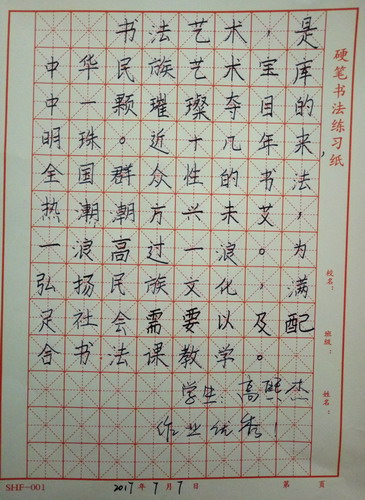 书法艺术，是
中华民族艺术宝库
中一颗璀璨夺目的
明珠。近十几年来，
全国群众性的书法
热潮潮方兴未艾，
一浪高过一浪。为
弘扬民族文化，满
足社会需要以及配
合书法课教学。
学生：高熙杰
作业优秀！
硬笔书法练习纸
校名：
班级：
姓名：
SHF-001 2017年7月7日 第 页